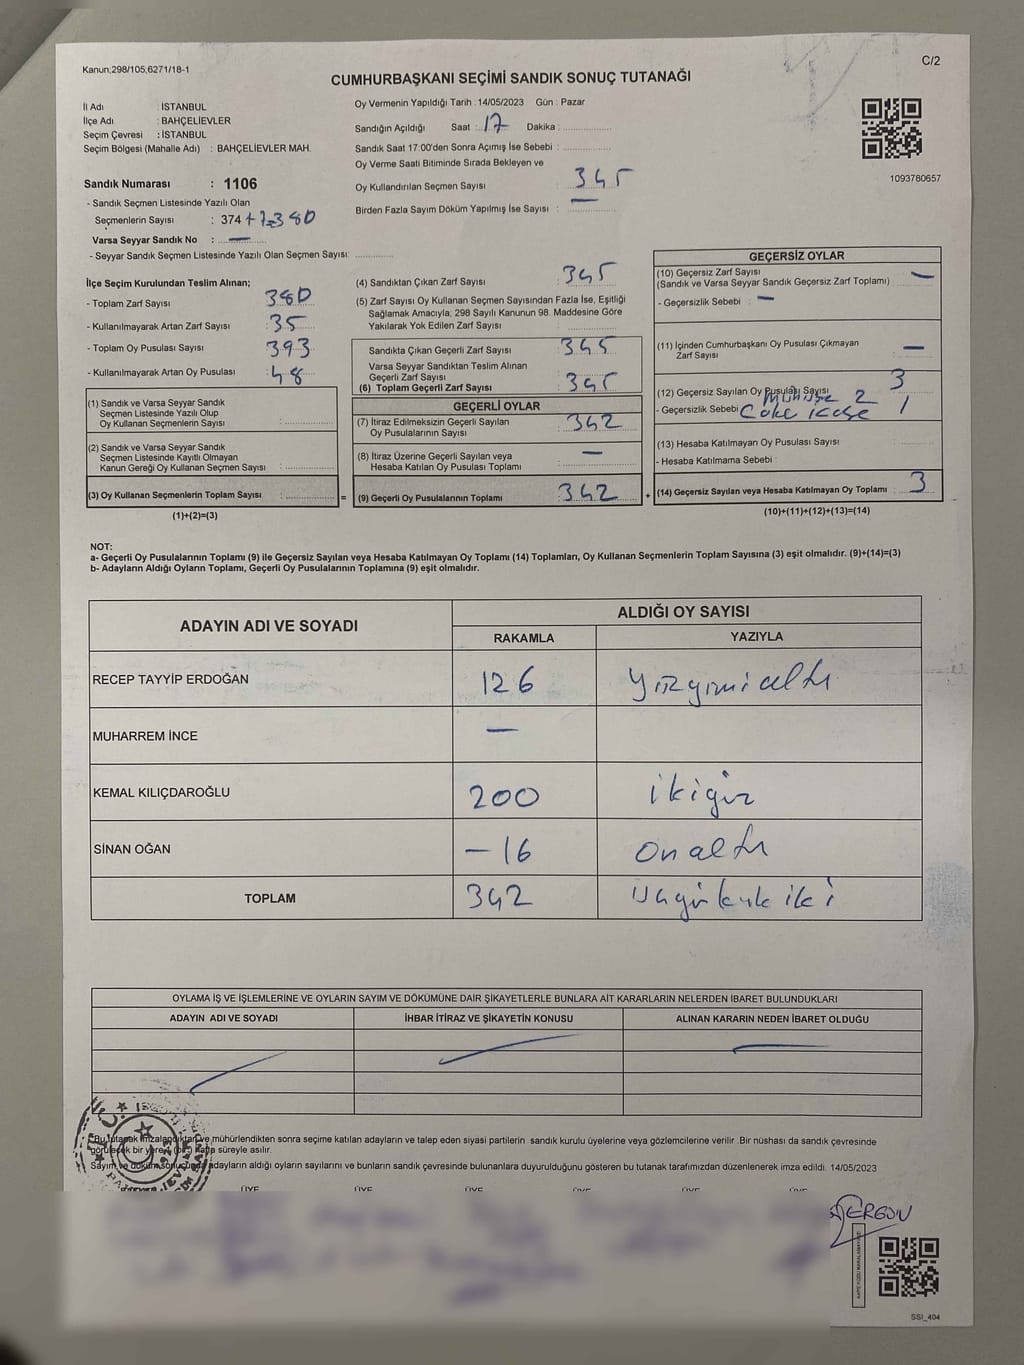 Kanun;298/105,6271/18-1
C/2
CUMHURBAŞKANI SEÇİMİ SANDIK SONUÇ TUTANAĞI
İl Adı : İSTANBUL
İlçe Adı : BAHÇELİEVLER
Seçim Çevresi : İSTANBUL
Seçim Bölgesi (Mahalle Adı) : BAHÇELİEVLER MAH.
Sandık Numarası : 1106
- Sandık Seçmen Listesinde Yazılı Olan
Seçmenlerin Sayısı : 374 + 7=380
Varsa Seyyar Sandık No : —
- Seyyar Sandık Seçmen Listesinde Yazılı Olan Seçmen Sayısı:
Oy Vermenin Yapıldığı Tarih : 14/05/2023 Gün : Pazar
Sandığın Açıldığı Saat : 17 Dakika :
Sandık Saat 17:00'den Sonra Açımış İse Sebebi :
Oy Verme Saati Bitiminde Sırada Bekleyen ve
Oy Kullandırılan Seçmen Sayısı 345
Birden Fazla Sayım Döküm Yapılmış İse Sayısı : —
1093780657
İlçe Seçim Kurulundan Teslim Alınan;
- Toplam Zarf Sayısı : 380
- Kullanılmayarak Artan Zarf Sayısı : 35
- Toplam Oy Pusulası Sayısı : 393
- Kullanılmayarak Artan Oy Pusulası : 48
(1) Sandık ve Varsa Seyyar Sandık
Seçmen Listesinde Yazılı Olup
Oy Kullanan Seçmenlerin Sayısı :
(2) Sandık ve Varsa Seyyar Sandık
Seçmen Listesinde Kayıtlı Olmayan
Kanun Gereği Oy Kullanan Seçmen Sayısı :
(3) Oy Kullanan Seçmenlerin Toplam Sayısı : =
(1)+(2)=(3)
(4) Sandıktan Çıkan Zarf Sayısı 345
(5) Zarf Sayısı Oy Kullanan Seçmen Sayısından Fazla İse, Eşitliği
Sağlamak Amacıyla, 298 Sayılı Kanunun 98. Maddesine Göre
Yakılarak Yok Edilen Zarf Sayısı
Sandıkta Çıkan Geçerli Zarf Sayısı 345
Varsa Seyyar Sandıktan Teslim Alınan
Geçerli Zarf Sayısı
(6) Toplam Geçerli Zarf Sayısı 345
GEÇERLİ OYLAR
(7) İtiraz Edilmeksizin Geçerli Sayılan
Oy Pusulalarının Sayısı : 342
(8) İtiraz Üzerine Geçerli Sayılan veya
Hesaba Katılan Oy Pusulası Toplamı : —
(9) Geçerli Oy Pusulalarının Toplamı : 342 +
GEÇERSİZ OYLAR
(10) Geçersiz Zarf Sayısı
(Sandık ve Varsa Seyyar Sandık Geçersiz Zarf Toplamı) : —
- Geçersizlik Sebebi : —
(11) İçinden Cumhurbaşkanı Oy Pusulası Çıkmayan
Zarf Sayısı —
(12) Geçersiz Sayılan Oy Pusulası Sayısı 3
2
- Geçersizlik Sebebi 1
(13) Hesaba Katılmayan Oy Pusulası Sayısı
- Hesaba Katılmama Sebebi :
(14) Geçersiz Sayılan veya Hesaba Katılmayan Oy Toplamı : 3
(10)+(11)+(12)+(13)=(14)
NOT:
a- Geçerli Oy Pusulalarının Toplamı (9) ile Geçersiz Sayılan veya Hesaba Katılmayan Oy Toplamı (14) Toplamları, Oy Kullanan Seçmenlerin Toplam Sayısına (3) eşit olmalıdır. (9)+(14)=(3)
b- Adayların Aldığı Oyların Toplamı, Geçerli Oy Pusulalarının Toplamına (9) eşit olmalıdır.
ADAYIN ADI VE SOYADI
ALDIĞI OY SAYISI
RAKAMLA YAZIYLA
RECEP TAYYİP ERDOĞAN 126 Yüzyirmialtı
MUHARREM İNCE —
KEMAL KILIÇDAROĞLU 200 ikiyüz
SİNAN OĞAN — 16 Onaltı
TOPLAM 342 Üçyüzkırkiki
OYLAMA İŞ VE İŞLEMLERİNE VE OYLARIN SAYIM VE DÖKÜMÜNE DAİR ŞİKAYETLERLE BUNLARA AİT KARARLARIN NELERDEN İBARET BULUNDUKLARI
ADAYIN ADI VE SOYADI İHBAR İTİRAZ VE ŞİKAYETİN KONUSU ALINAN KARARIN NEDEN İBARET OLDUĞU
Bu tutanak imzalandıktan ve mühürlendikten sonra seçime katılan adayların ve talep eden siyasi partilerin sandık kurulu üyelerine veya gözlemcilerine verilir .Bir nüshası da sandık çevresinde
görülecek bir yere, (bir) hafta süreyle asılır.
Sayım ve döküm sonucunda adayların aldığı oyların sayılarını ve bunların sandık çevresinde bulunanlara duyurulduğunu gösteren bu tutanak tarafımızdan düzenlenerek imza edildi. 14/05/2023
ÜYE ÜYE ÜYE ÜYE ÜYE ÜYE
ERGÜN
SSİ_404